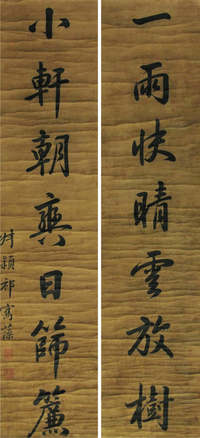 一雨快晴雲放樹
小軒朝爽日篩簾
叔穎祁寯藻